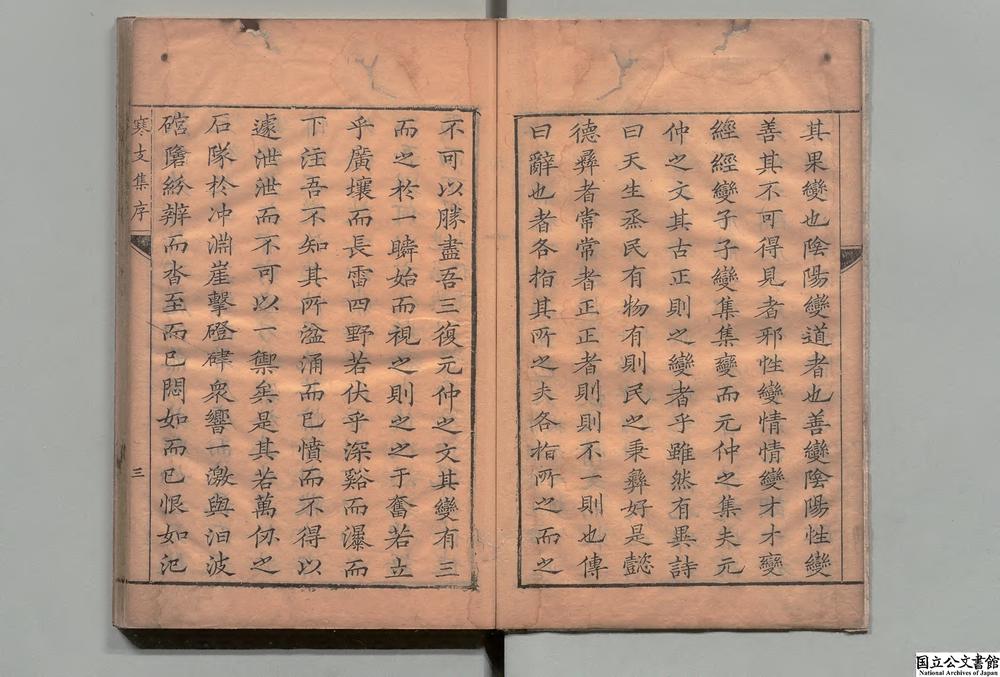 其果變也陰陽變道者也善變陰陽性變
善其不可得見者邪性變情情變才才變
經經變子子變集集變而元仲之集夫元
仲之文其古正則之變者乎雖然有異詩
曰天生烝民有物有則民之秉彝好是懿
德彝者常常者正正者則則不一則也傳
曰辭也者各指其所之夫各指所之而之
不可以勝盡吾三復元仲之文其變有三
而之於一瞬始而視之則之之于奮若立
乎廣壤而長雷四野若伏乎深谿而瀑而
下注吾不知其所湓涌而已憤而不得以
遽泄泄而不可以一禦矣是其若萬仞之
石隊於冲淵崖擊磴硉衆響一激與洎波
硿隌紛辨而沓至而已悶如而已恨如氾
寒支集序
三
国立公文書館
National Archives of Japan